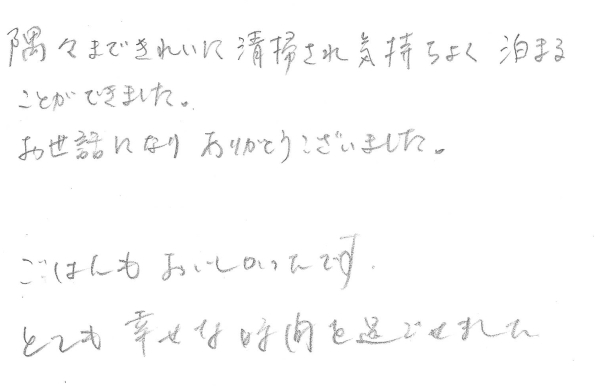 隅々まできれいに清掃され気持ちよく泊まる
ことができました。
お世話になりありがとうございました。
ごはんもおいしかったです.
とても幸せな時間を過ごせました